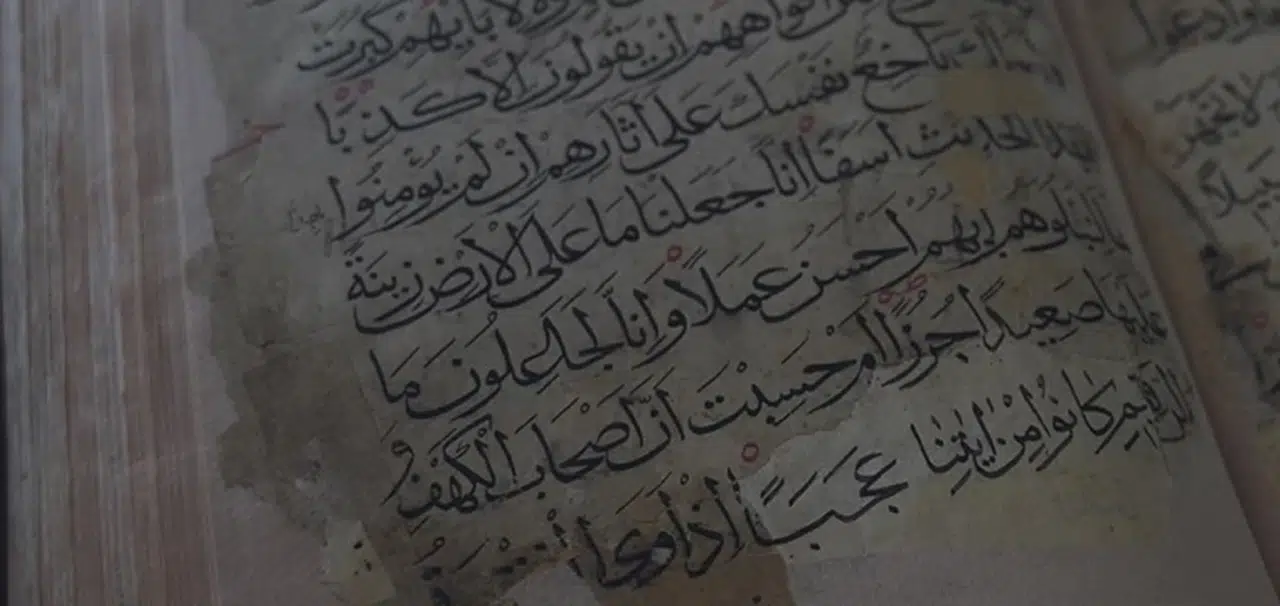 ولا بايهم كبرت
افواههم ان يقولون الا كذبا
باخع نفسك على اثارهم ان لم يؤمنوا
بهذا الحديث اسفا انا جعلنا ما على الارض زينة
لها لنبلوهم ايهم احسن عملا وانا لجاعلون ما
عليها صعيدا جرزا ام حسبت ان اصحاب الكهف و
الرقيم كانوا من ايتنا عجبا اذ اوى
وادعوا
لا تجهر
سبيلا